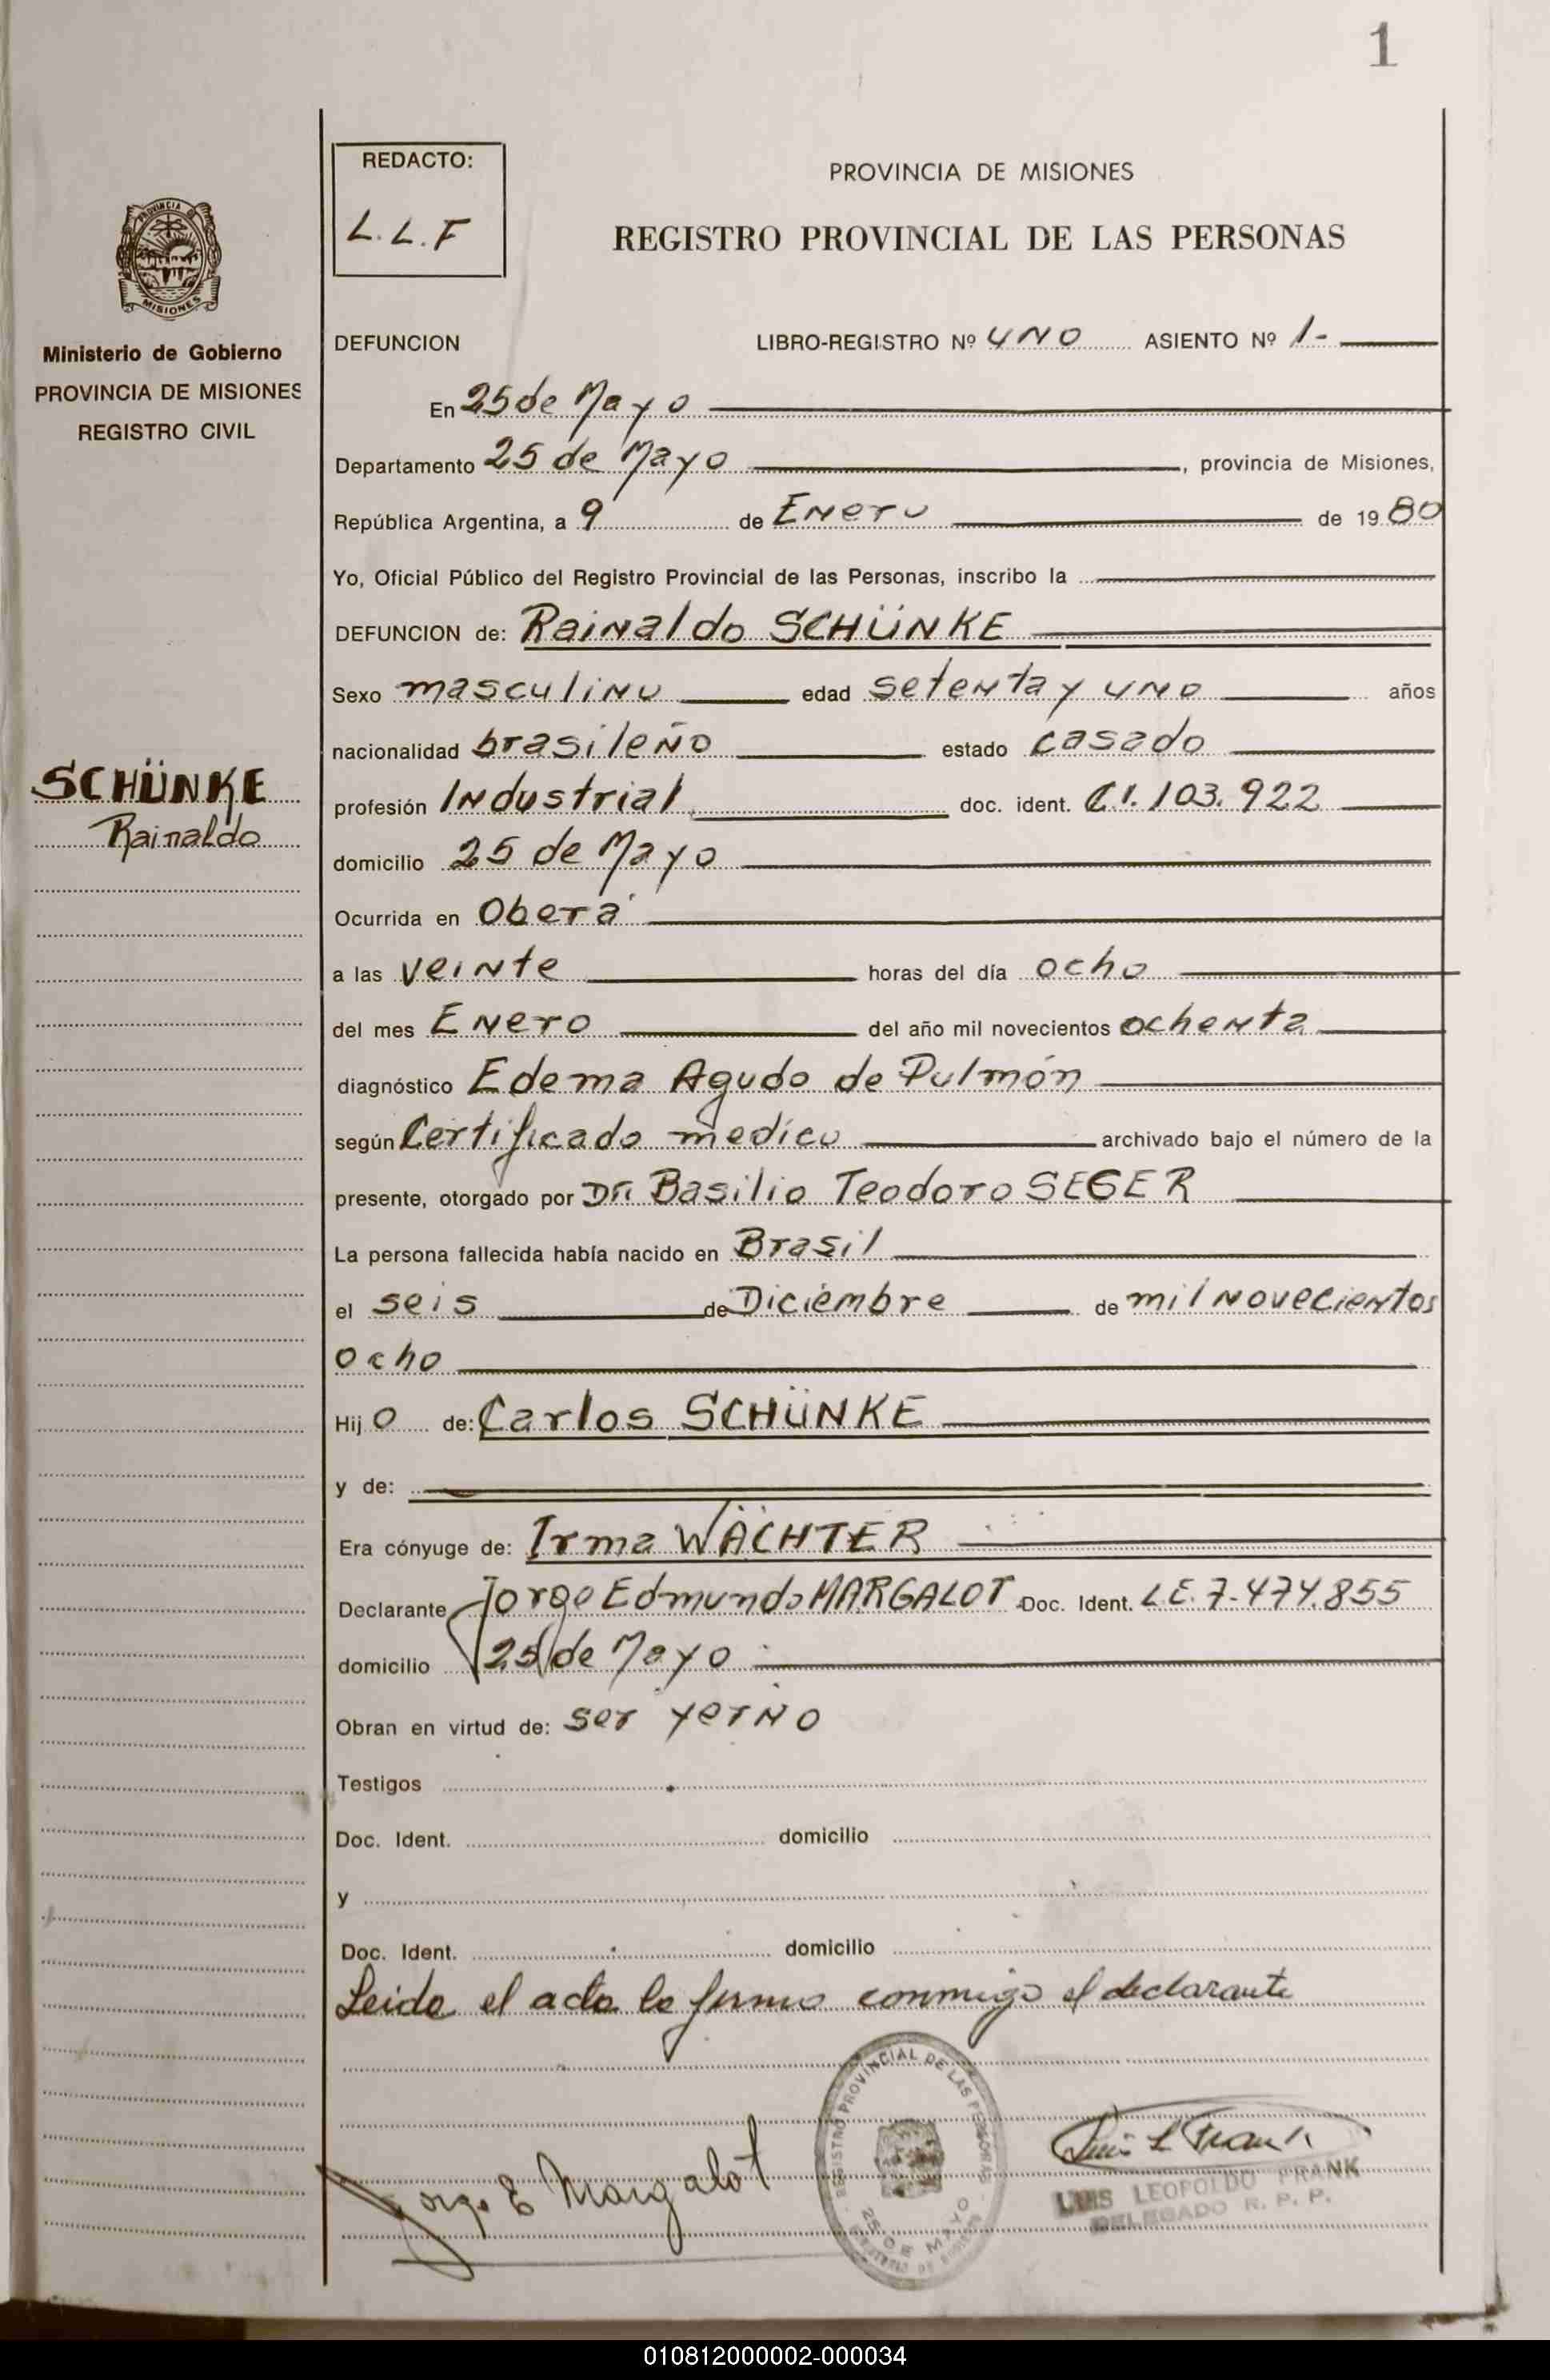 1
REDACTO:
L.L.F
PROVINCIA DE MISIONES
REGISTRO PROVINCIAL DE LAS PERSONAS
PROVINCIA DE
MISIONES
Ministerio de Gobierno
PROVINCIA DE MISIONES
REGISTRO CIVIL
SCHÜNKE
Rainaldo
DEFUNCION LIBRO-REGISTRO Nº UNO ASIENTO Nº 1-
En 25 de Mayo
Departamento 25 de Mayo, provincia de Misiones,
República Argentina, a 9 de Enero de 1980
Yo, Oficial Público del Registro Provincial de las Personas, inscribo la
DEFUNCION de: Rainaldo SCHÜNKE
Sexo masculino edad setenta y uno años
nacionalidad brasileño estado casado
profesión Industrial doc. ident. C.I. 103.922
domicilio 25 de Mayo
Ocurrida en Oberá
a las veinte horas del día ocho
del mes Enero del año mil novecientos ochenta
diagnóstico Edema Agudo de Pulmón
según Certificado medico archivado bajo el número de la
presente, otorgado por Dr. Basilio Teodoro SEGER
La persona fallecida había nacido en Brasil
el seis de Diciembre de mil novecientos
ocho
Hijo de: Carlos SCHÜNKE
y de:
Era cónyuge de: Irma WÄCHTER
Declarante Jorge Edmundo MARGALOT Doc. Ident. L.E. 7.474.855
domicilio 25 de Mayo
Obran en virtud de: ser yerno
Testigos
Doc. Ident. domicilio
y
Doc. Ident. domicilio
Leida el acta la firma conmigo el declarante
Jorge E Margalot
REGISTRO PROVINCIAL DE LAS PERSONAS
25 DE MAYO
Luis L Frank
LUIS LEOPOLDO FRANK
DELEGADO R. P. P.
010812000002-000034